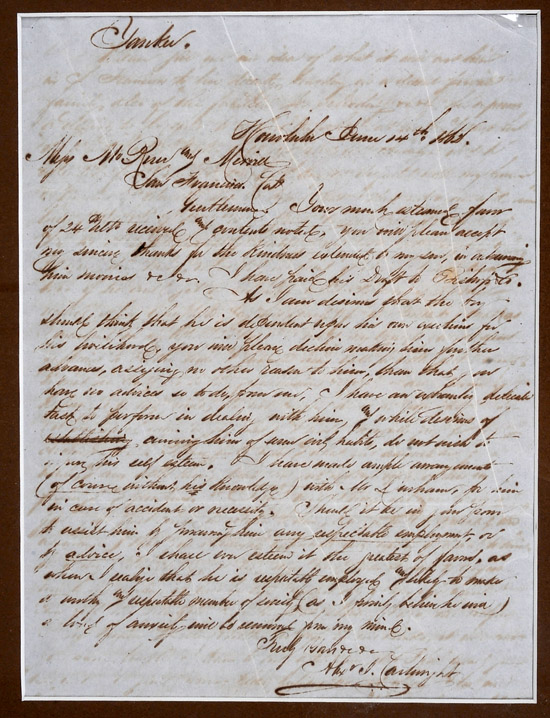 Yankee.
Honolulu June 14th, 186
Messrs McRuer & Merrill
San Francisco, Cal
Gentlemen, Yours much esteemed favor
of 24 Ulto received & contents noted, you will please accept
my sincere thanks for the kindness extended to my son, in advancing
him monies &c &c. I have paid his Dft to Bishop & Co.
As I am desirous that the boy
should think that he is dependent upon his own exertions for
his livelihood, you will please decline making him further
advances, assigning no other reason to him, than that you
have no advices so to do from me, I have an extremely delicate
task to perform in dealing with him, & while desirous of
curing him of some bad habits, do not wish to
injure his self esteem. I have made ample arrangements
(of course without his knowledge) with Mr for him
in case of accident or necessity. Should it be in your power
to assist him by procuring him any respectable employment or
by advice, I shall esteem it the greatest of favors, as
when I realize that he is respectably employed & likely to make
a worthy & respectable member of society (as I firmly believe he will)
a load of anxiety will be removed from my mind.
Truly Yours &c &c
Alexr J. Cartwright